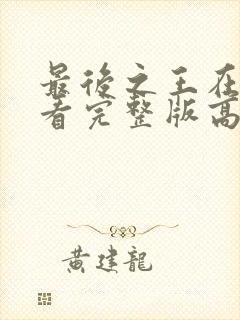 最後之王在
看完整版高
黃建龍